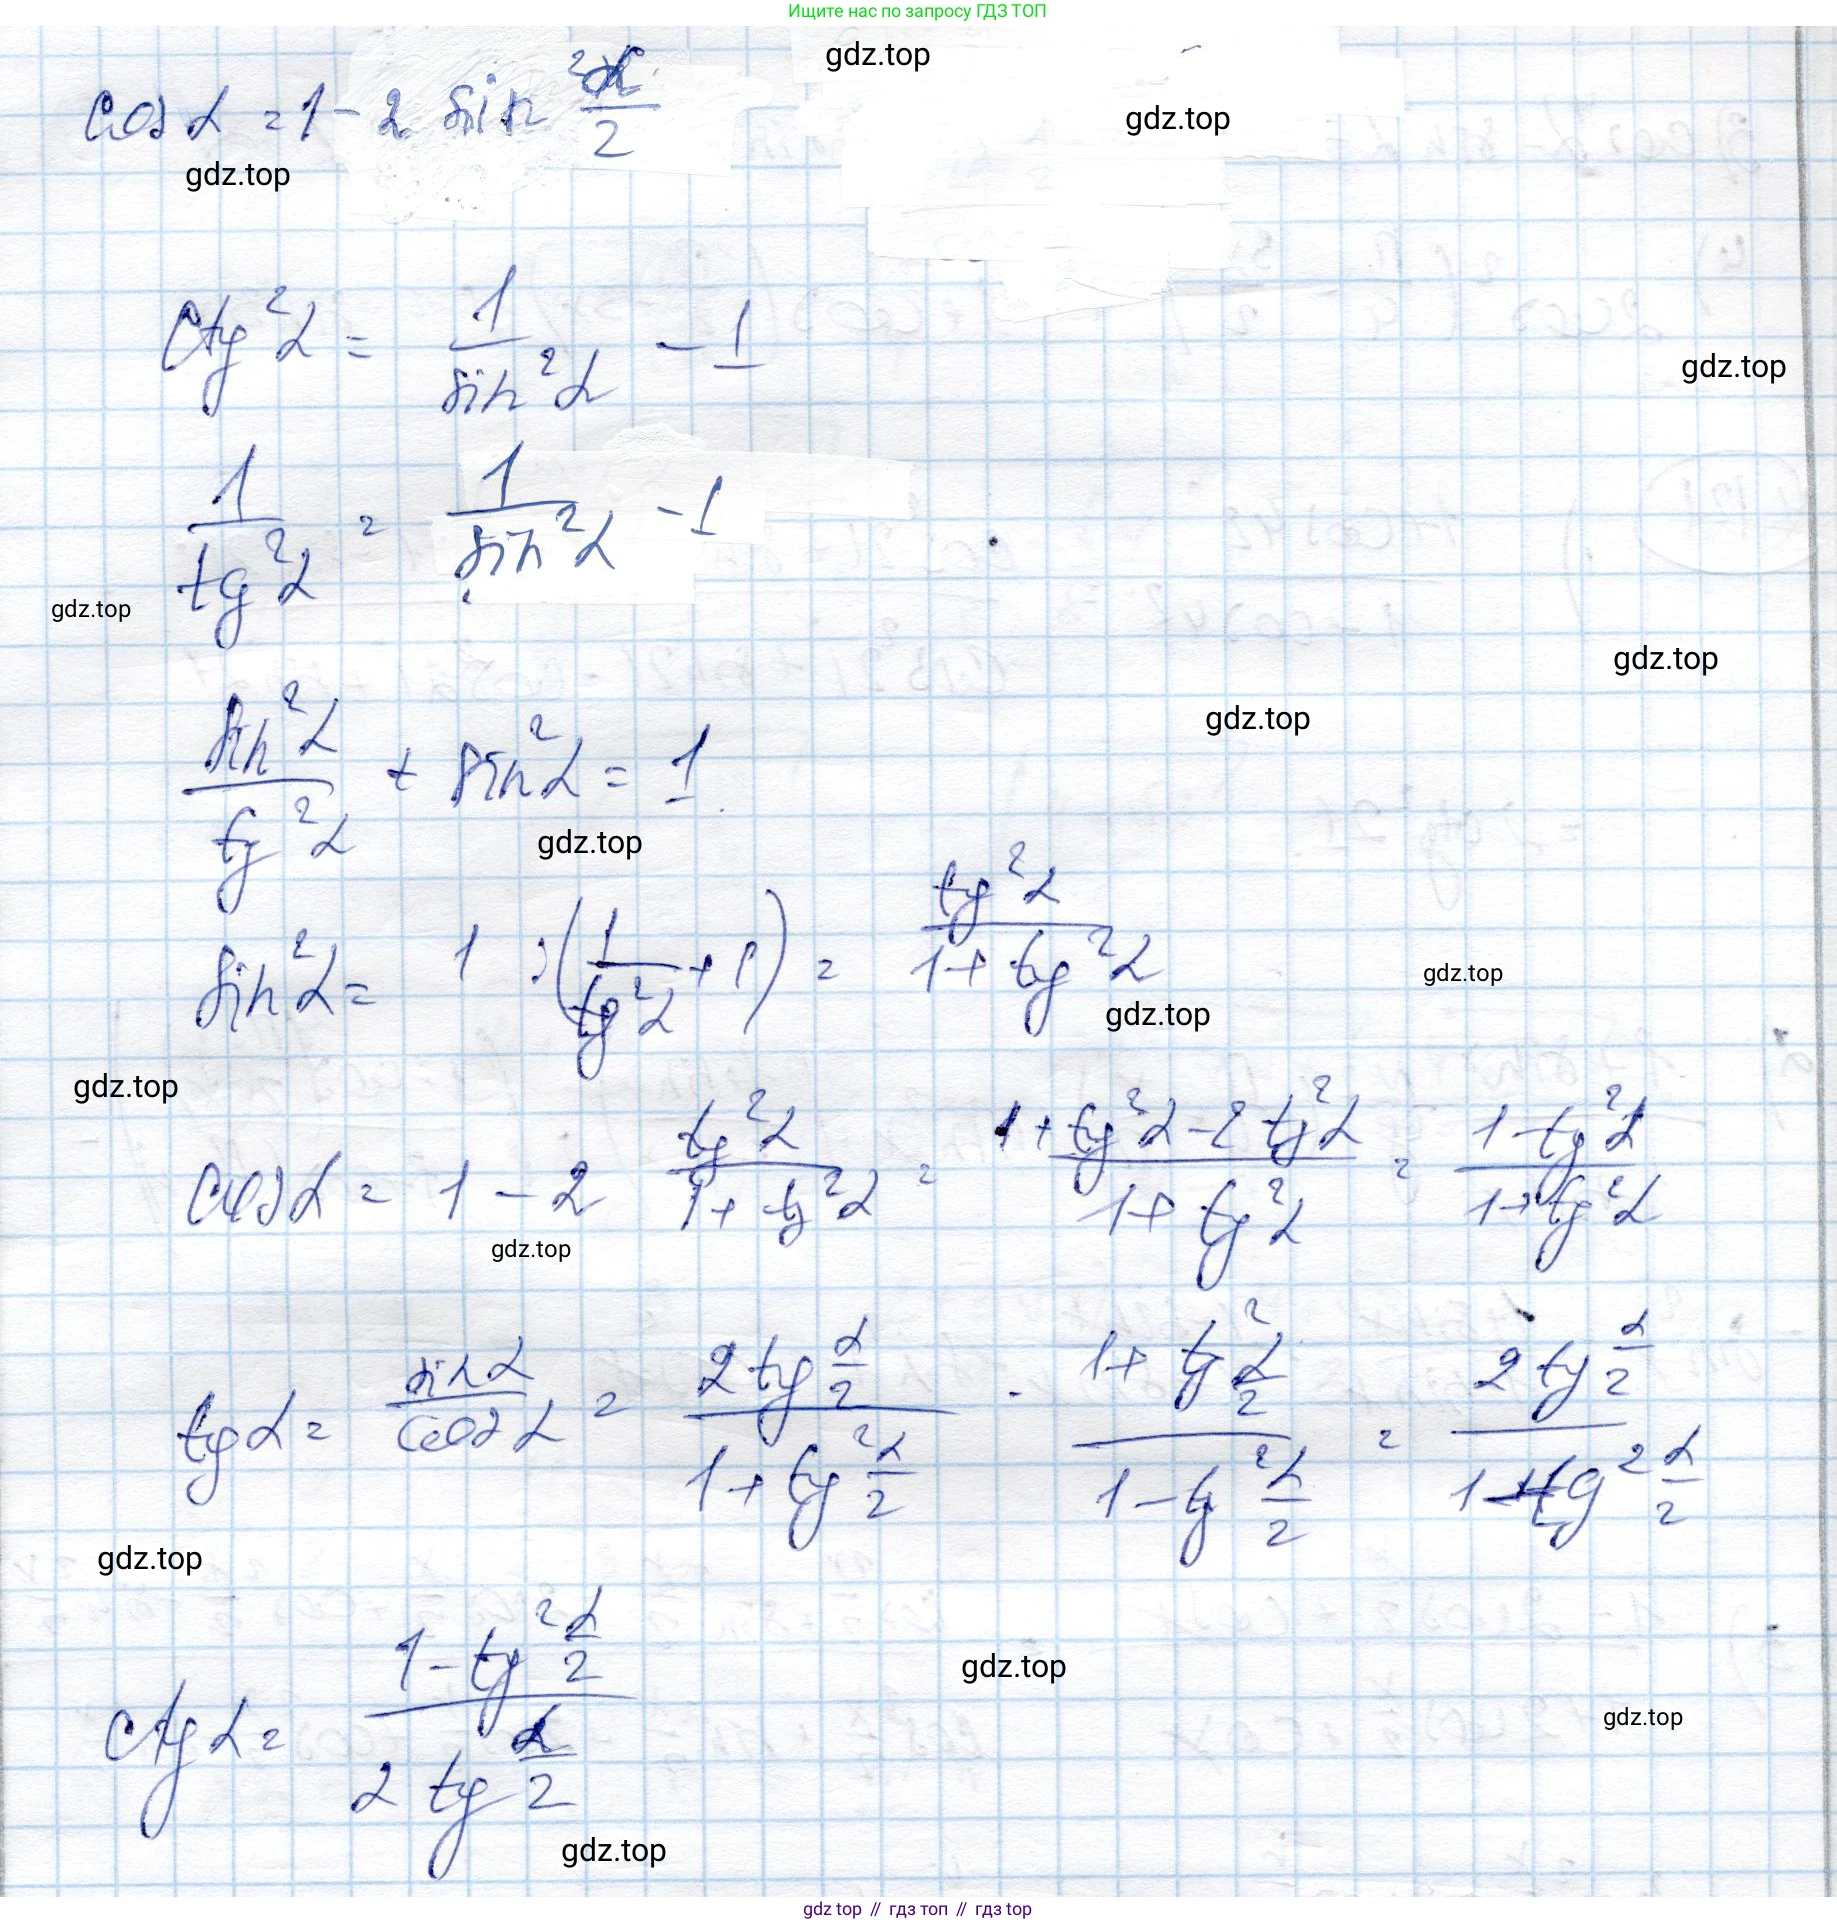 Ищите нас по запросу ГДЗ ТОП
gdz.top
cos α = 1 - 2 sin² α/2
gdz.top
gdz.top
ctg²α = 1/sin²α - 1
gdz.top
1/tg²α = 1/sin²α - 1
gdz.top
gdz.top
gdz.top
sin²α/tg²α + sin²α = 1
gdz.top
sin²α = 1 : (1/tg²α + 1) = tg²α/1 + tg²α
gdz.top
gdz.top
gdz.top
cos α = 1 - 2 tg²α/1 + tg²α = 1 + tg²α - 2 tg²α/1 + tg²α = 1 - tg²α/1 + tg²α
gdz.top
tg α = sin α/cos α = 2 tg α/2/1 + tg² α/2 · 1 + tg² α/2/1 - tg² α/2 = 2 tg α/2/1 - tg² α/2
gdz.top
ctg α = 1 - tg² α/2/2 tg α/2
gdz.top
gdz.top
gdz.top
gdz top // гдз топ // gdz top